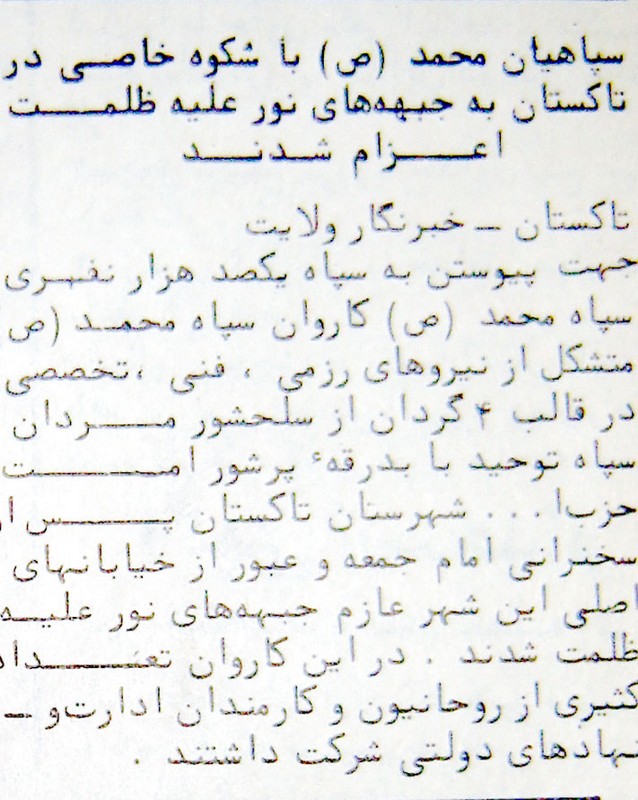 سپاهیان محمد (ص) با شکوه خاصی در
تاکستان به جبهه‌های نور علیه ظلمت
اعزام شدند
تاکستان ـ خبرنگار ولایت
جهت پیوستن به سپاه یکصد هزار نفری
سپاه محمد (ص) کاروان سپاه محمد (ص)
متشکل از نیروهای رزمی ، فنی ،تخصصی
در قالب ۴ گردان از سلحشور مردان
سپاه توحید با بدرقهٔ پرشور امت
حزب‌ا... شهرستان تاکستان پس از
سخنرانی امام جمعه و عبور از خیابانهای
اصلی این شهر عازم جبهه‌های نور علیه
ظلمت شدند . در این کاروان تعداد
کثیری از روحانیون و کارمندان ادارت‌و ـ
نهادهای دولتی شرکت داشتند .